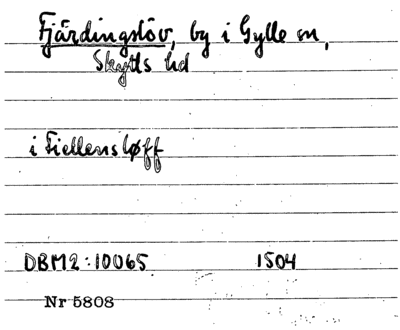 Fjärdingslöv, by i Gylle sn,
Skytts hd
i Fiellensløff
DBM2:10065 1504
Nr 5808